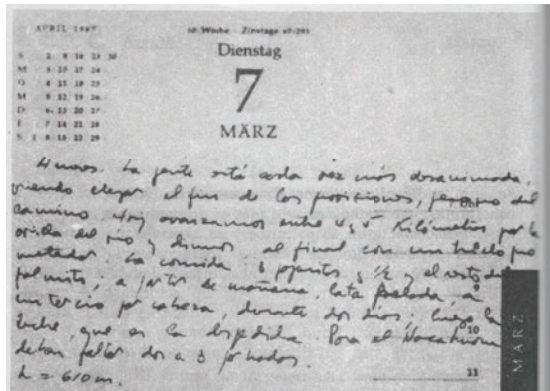 APRIL 1967
10. Woche Zinstage 67-293
Dienstag
7
MÄRZ
S 2 9 16 23 30
M 3 10 17 24
D 4 11 18 25
M 5 12 19 26
D 6 13 20 27
F 7 14 21 28
S 1 8 15 22 29
4 meses. La gente está cada vez más desanimada,
viendo llegar el fin de las provisiones, pero no del
camino. Hoy avanzamos entre 4 y 5 kilómetros por la
orilla del río y dimos al final con un trillo pro
metedor. La comida: 3 pajaritos y ½ y el resto del
palmito; a partir de mañana, lata pelada, a
un tercio por cabeza, durante dos días; luego la
leche, que es la despedida. Para el
deben faltar dos a 3 jornadas.
h = 610 m.
9
10
11
MÄRZ